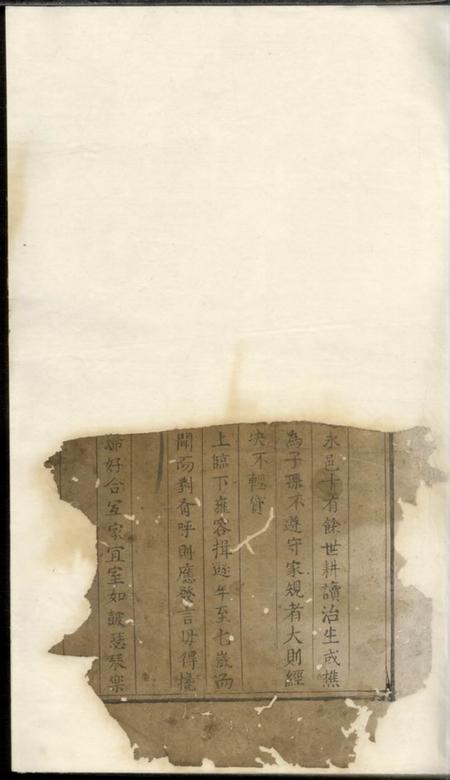 永邑十有餘世耕讀治生或樵
為子孫不遵守家規者大則經
決不輕貸
上臨下雍容揖遜年至七歲而
聞而對有呼則應發言毋得擾
婦好合宜家宜室如鼓瑟琴樂